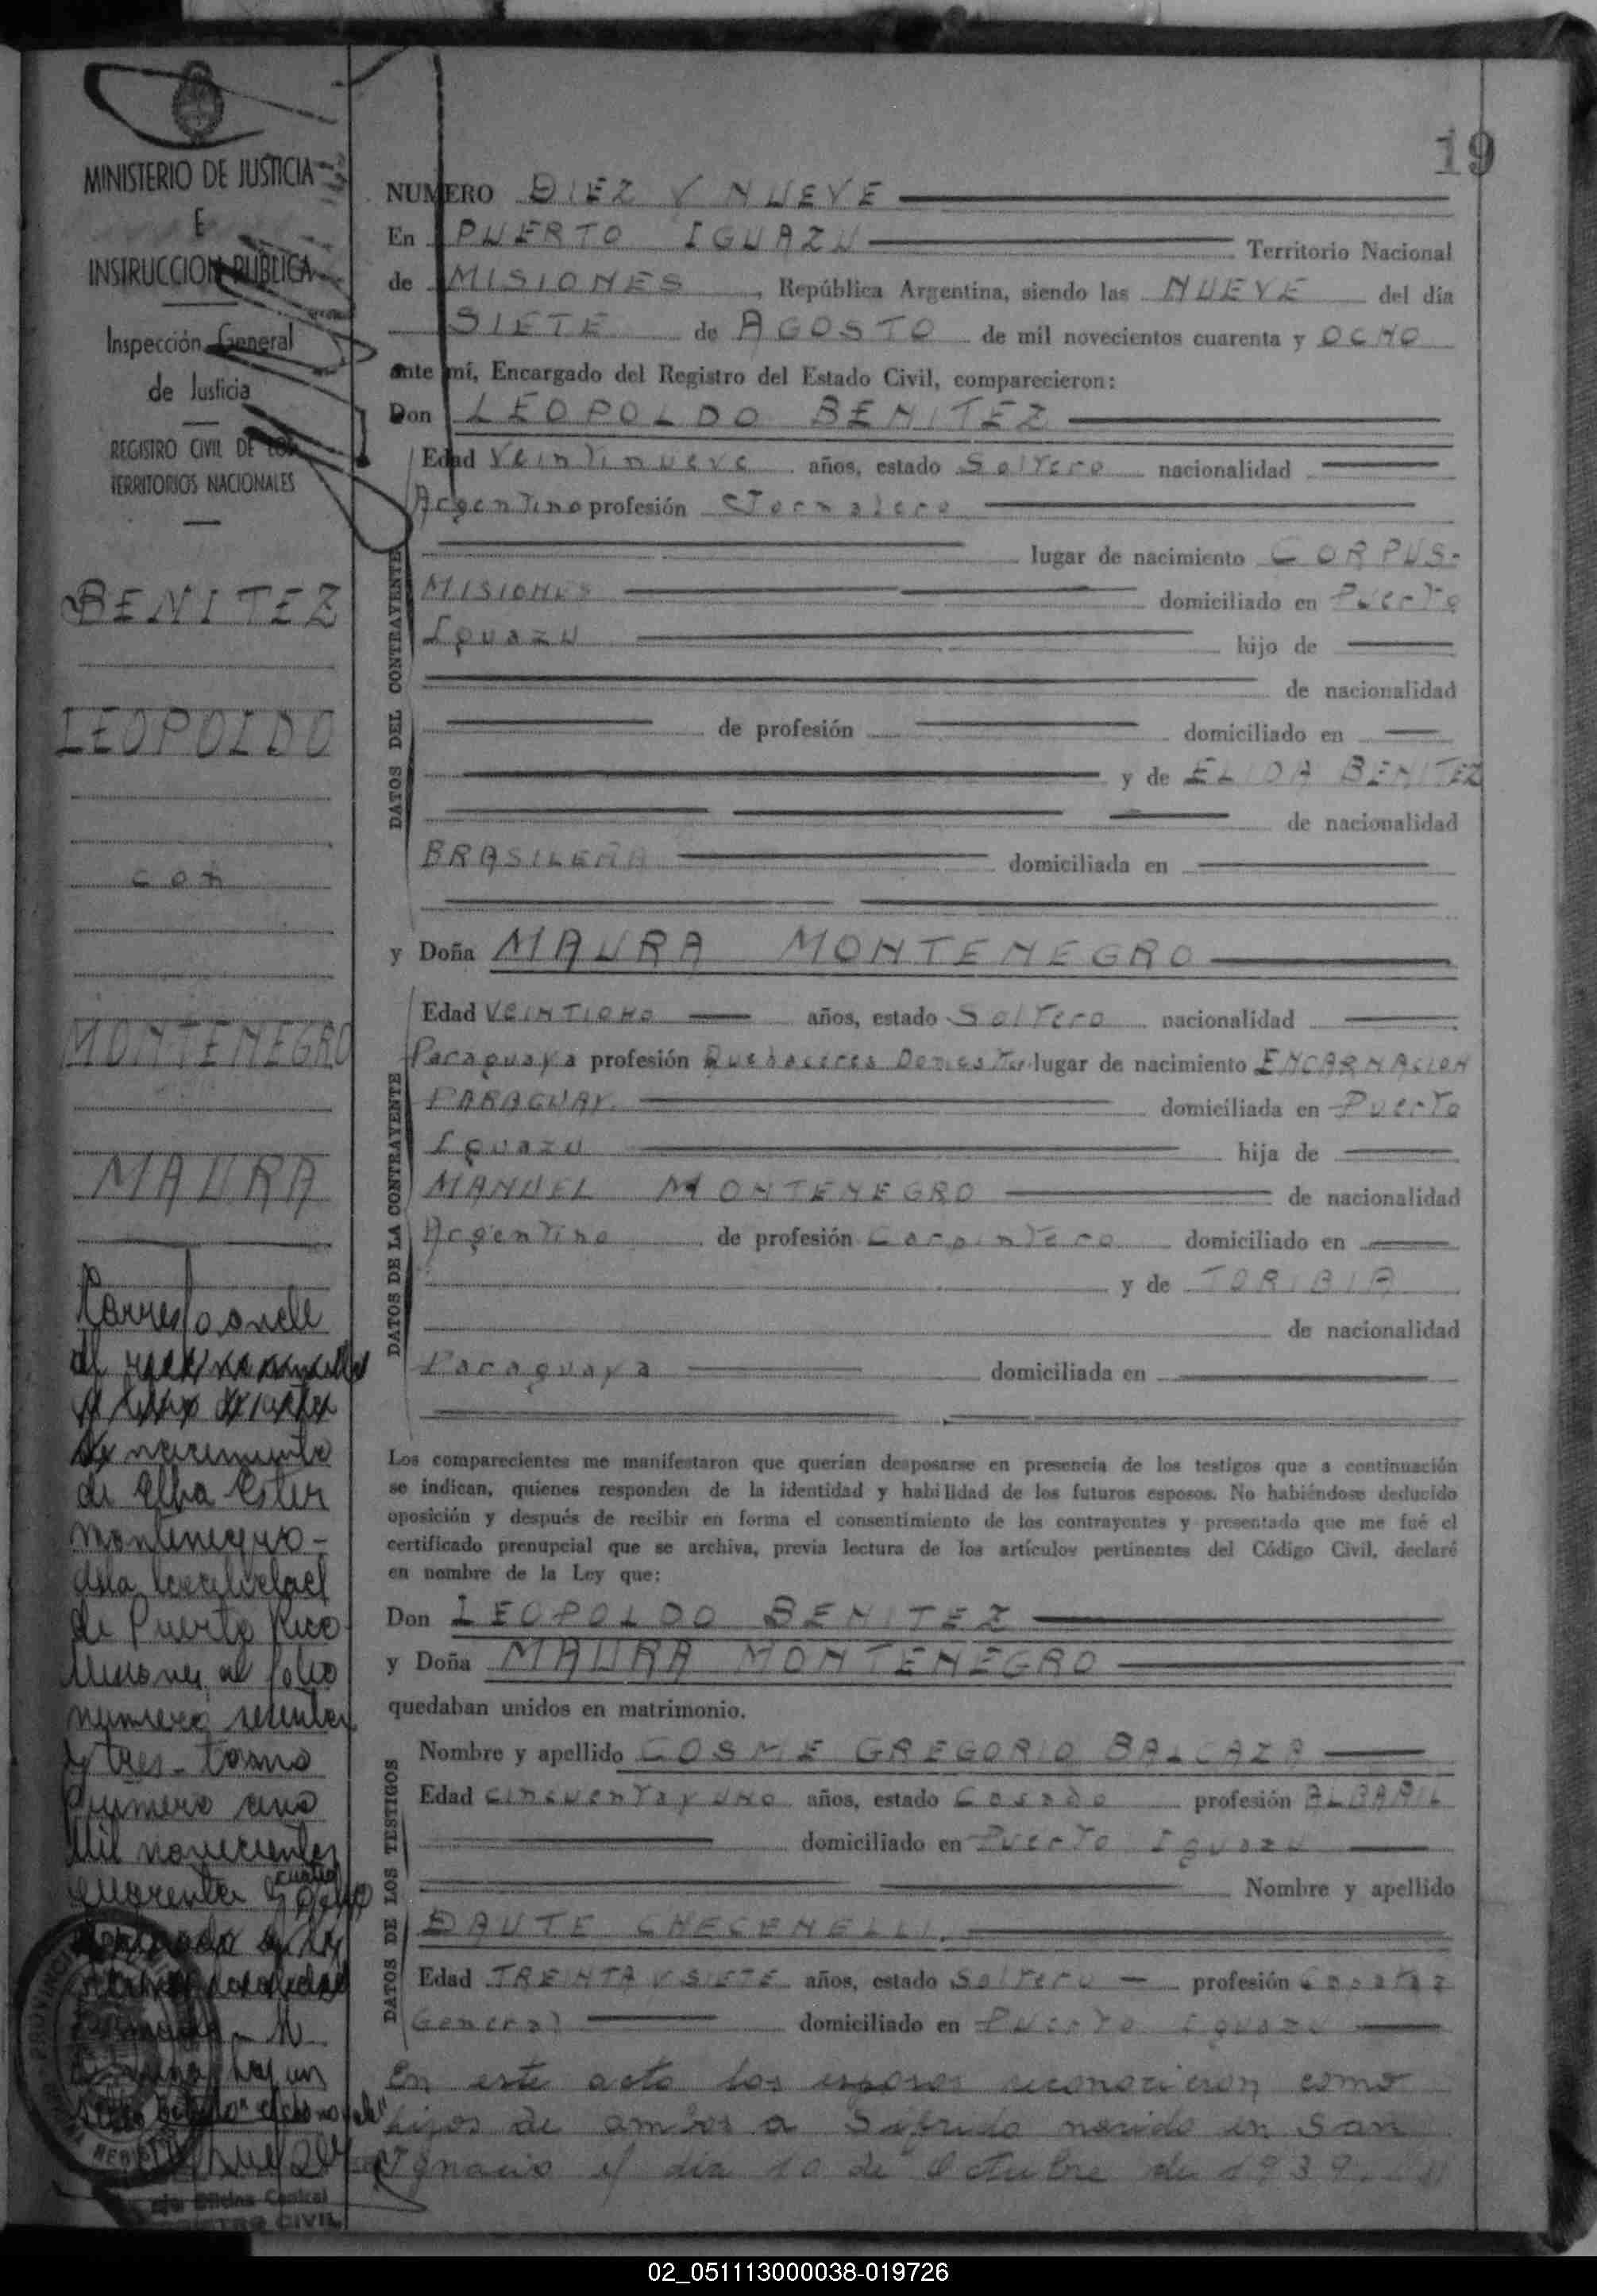 19
MINISTERIO DE JUSTICIA
E
INSTRUCCION PUBLICA
Inspección General
de Justicia
REGISTRO CIVIL DE LOS
TERRITORIOS NACIONALES
BENITEZ
LEOPOLDO
con
MONTENEGRO
MAURA
Corresponde
al
de nacimiento
de Elba Ester
Montenegro -
de la localidad
de Puerto Rico
Misiones, al folio
número sesenta
y tres - tomo
Primero año
Mil novecientos
cuarenta y cuatro
NUMERO DIEZ Y NUEVE
En PUERTO IGUAZU Territorio Nacional
de MISIONES, República Argentina, siendo las NUEVE del día
SIETE de AGOSTO de mil novecientos cuarenta y OCHO
ante mí, Encargado del Registro del Estado Civil, comparecieron:
Don LEOPOLDO BENITEZ
DATOS DEL CONTRAYENTE
Edad Veintinueve años, estado Soltero nacionalidad
Argentino profesión Jornalero
lugar de nacimiento CORPUS-
MISIONES domiciliado en Puerto
Iguazu hijo de
de nacionalidad
de profesión domiciliado en
y de ELIDA BENITEZ
de nacionalidad
BRASILEÑA domiciliada en
y Doña MAURA MONTENEGRO
DATOS DE LA CONTRAYENTE
Edad VEINTIOHO años, estado Soltero nacionalidad
Paraguaya profesión Quehaceres Domestu lugar de nacimiento ENCARNACION
PARAGUAY. domiciliada en Puerto
Iguazu hija de
MANUEL MONTENEGRO de nacionalidad
Argentino de profesión Carpintero domiciliado en
y de TORIBIA
de nacionalidad
Paraguaya domiciliada en
Los comparecientes me manifestaron que querían desposarse en presencia de los testigos que a continuación
se indican, quienes responden de la identidad y habilidad de los futuros esposos. No habiéndose deducido
oposición y después de recibir en forma el consentimiento de los contrayentes y presentado que me fué el
certificado prenupcial que se archiva, previa lectura de los artículos pertinentes del Código Civil, declaré
en nombre de la Ley que:
Don LEOPOLDO BENITEZ
y Doña MAURA MONTENEGRO
quedaban unidos en matrimonio.
DATOS DE LOS TESTIGOS
Nombre y apellido COSME GREGORIO BALCAZA
Edad cincuenta y uno años, estado Casado profesión ALBAÑIL
domiciliado en Puerto Iguazu
Nombre y apellido
DAUTE CHECENELLI.
Edad TREINTA Y SIETE años, estado Soltero profesión Capataz
General domiciliado en Puerto Iguazu
En este acto los esposos reconocieron como
hijos de ambos a Sifrido nacido en San
Ignacio el dia 10 de Octubre de 1939.
Oficina Central
REGISTRO CIVIL
02_051113000038-019726